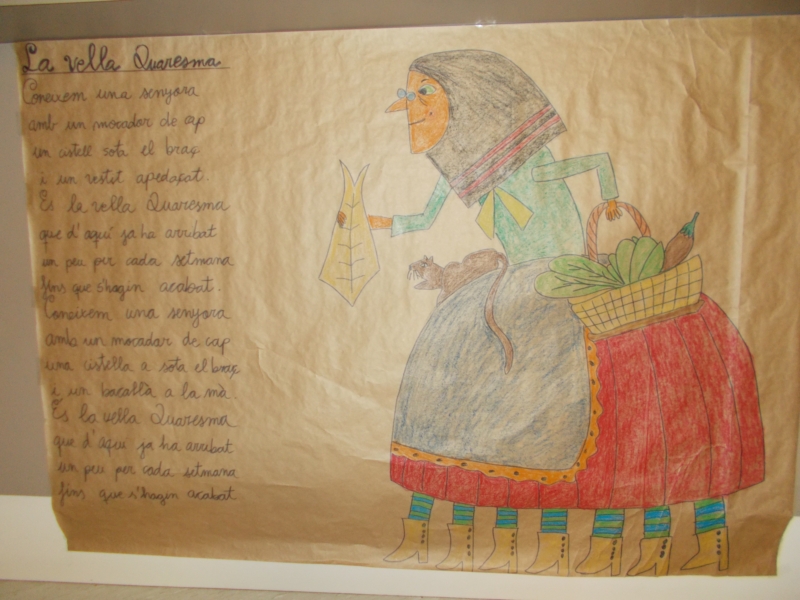 La vella Quaresma
Coneixem una senyora
amb un mocador de cap
un cistell sota el braç
i un vestit apedaçat.
Es la vella Quaresma
que d'aquí ja ha arribat
un peu per cada setmana
fins que s'hagin acabat.
Coneixem una senyora
amb un mocador de cap
una cistella a sota el braç
i un bacallà a la mà.
És la vella Quaresma
que d'aquí ja ha arribat
un peu per cada setmana
fins que s'hagin acabat